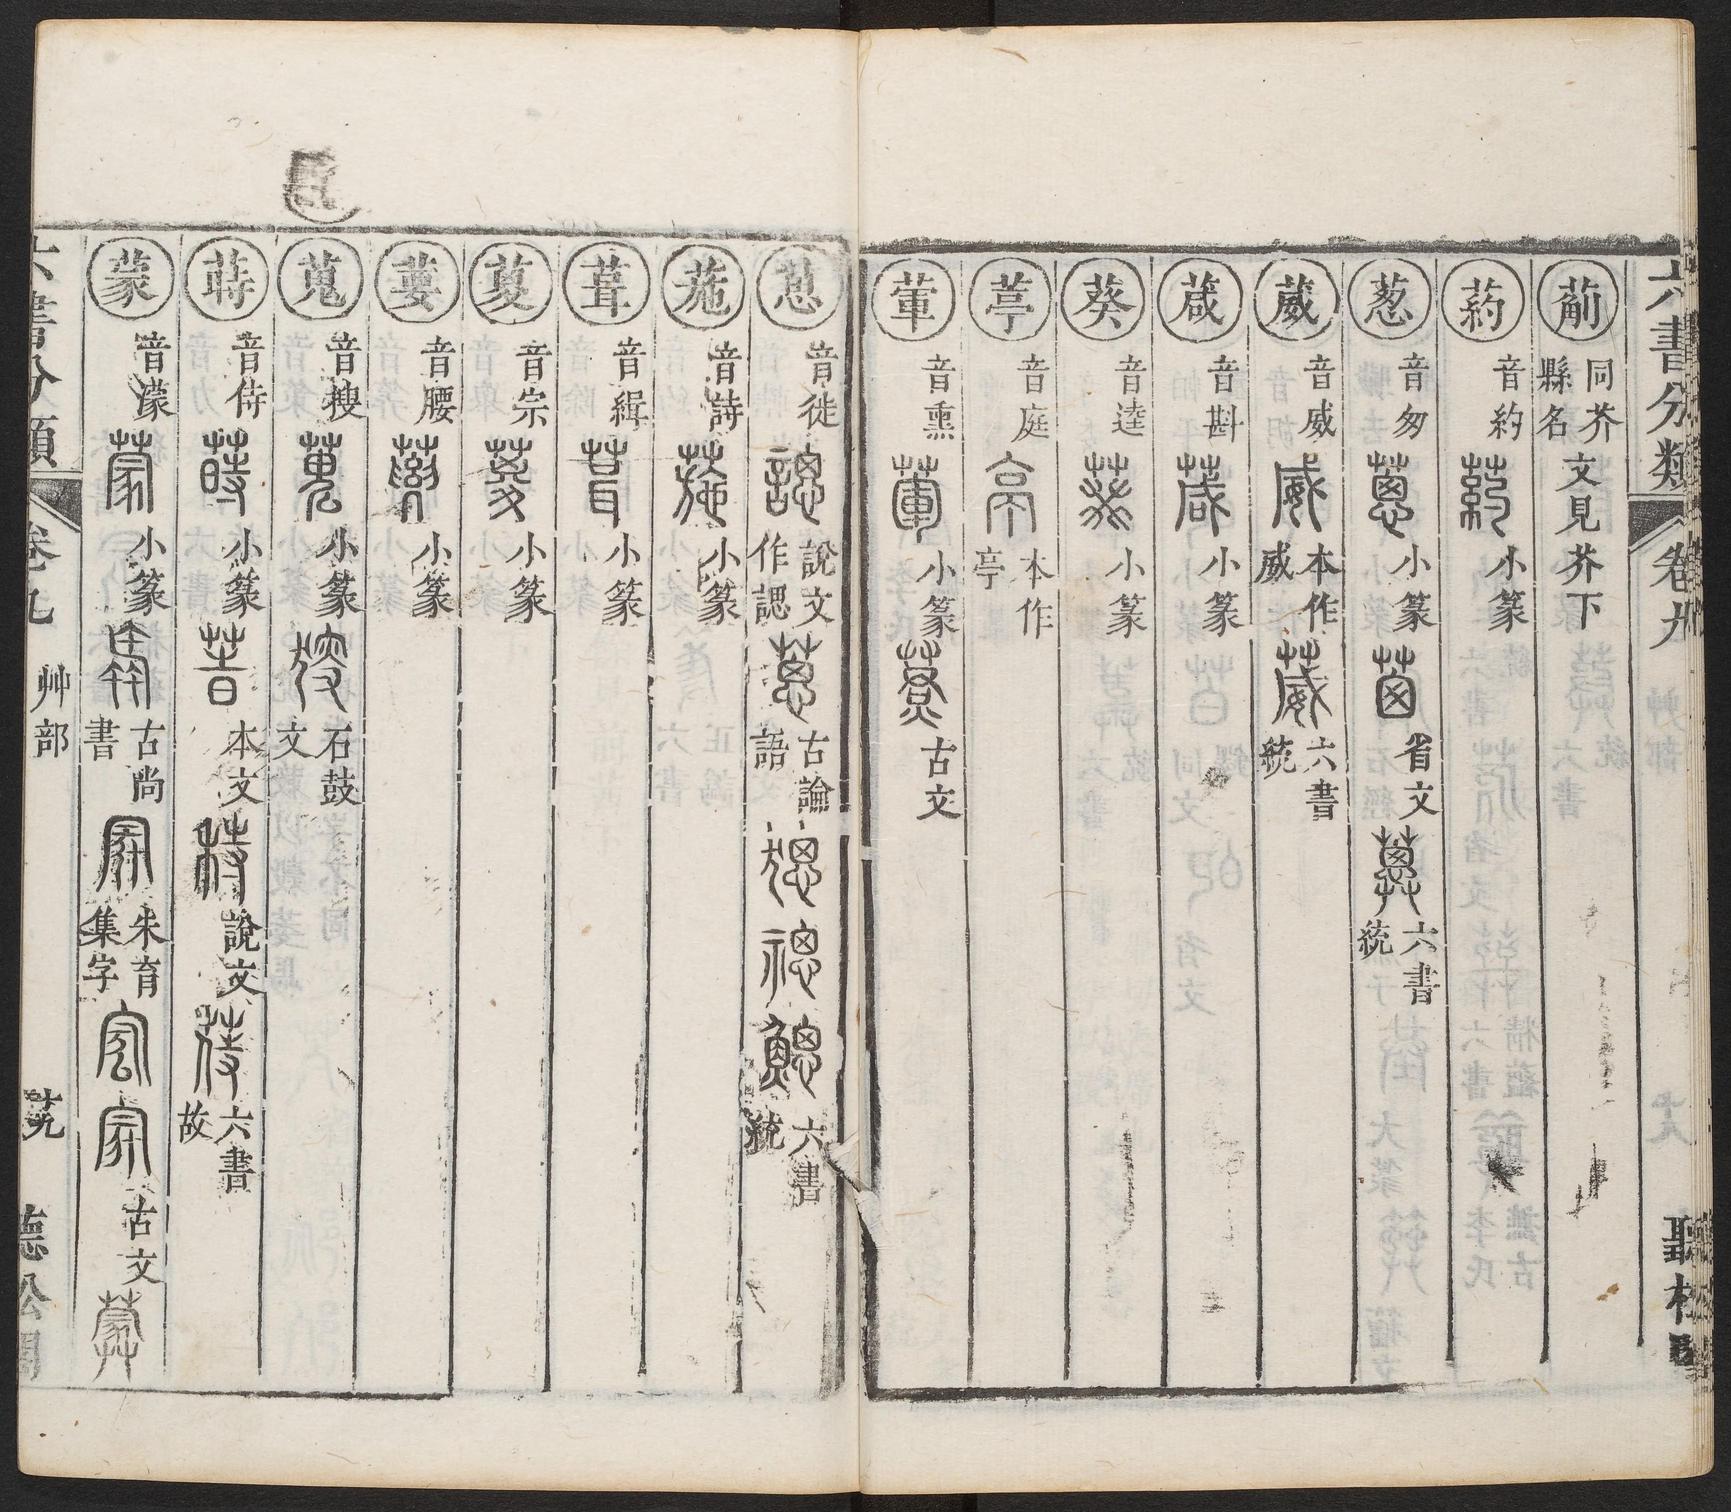 六書分類 卷九 艸部
葪 同芥縣名 文見芥下
葯 音約 葯 小篆
葱 音匆 蔥 小篆 茵 省文 六書統
葳 音威 威 本作威 葳 六書統
葴 音斟 葴 小篆
葵 音逵 葵 小篆
葶 音庭 亭 本作亭
葷 音熏 葷 小篆 古文
葸 音徙 諰 說文作諰 葸 古論語 六書統
葹 音詩 葹 小篆
葺 音緝 葺 小篆
葼 音宗 葼 小篆
葽 音腰 葽 小篆
蒐 音搜 蒐 小篆 石鼓文
蒔 音侍 蒔 小篆 本文 說文 六書故
蒙 音濛 蒙 小篆 古尚書 朱育集字 古文
六書分類 卷九 艸部